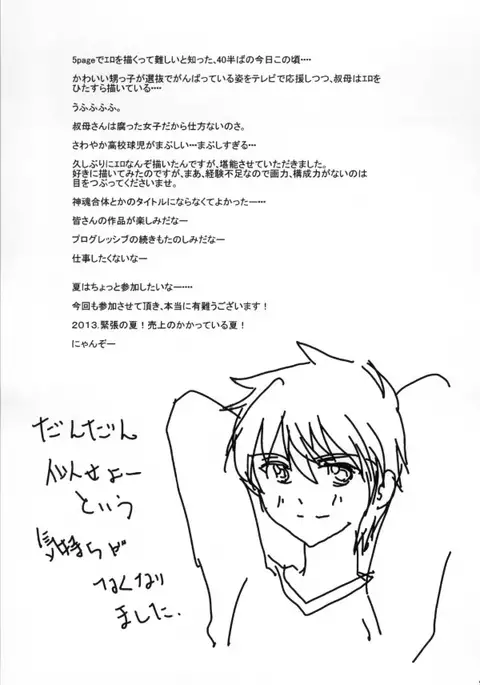 5pageでｴﾛを描くって難しいと知った、40半ばの今日この頃‥‥
かわいい甥っ子が選抜でがんばっている姿をテレビで応援しつつ、叔母はｴﾛを
ひたすら描いている‥‥
うふふふふ。
叔母さんは腐った女子だから仕方ないのさ。
さわやか高校球児がまぶしい…まぶしすぎる…
久しぶりにｴﾛなんぞ描いたんですが、堪能させていただきました。
好きに描いてみたのですが、まあ、経験不足なので画力、構成力がないのは
目をつぶってくださいませ。
神魂合体とかのタイトルにならなくてよかったー…
皆さんの作品が楽しみだなー
プログレッシブの続きもたのしみだなー
仕事したくないなー
夏はちょっと参加したいなー‥‥
今回も参加させて頂き、本当に有難うございます！
２０１３．緊張の夏！売上のかかっている夏！
にゃんぞー
だんだん
似せよー
という
気持ちが
なくなり
ました．